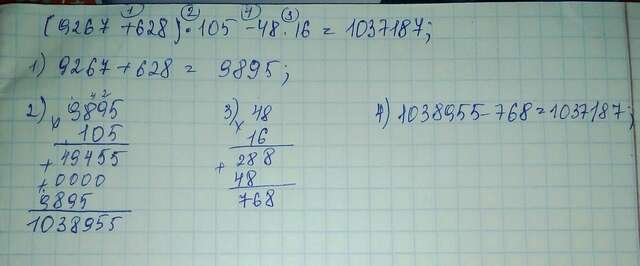 (9267 + 628) · 105 - 48 · 16 = 1037187;
1 2 4 3
1) 9267 + 628 = 9895;
2) 9895
4 2
× 105
+ 49455
+ 0000
9895
1038955
3) 48
× 16
+ 288
48
768
4) 1038955 - 768 = 1037187;